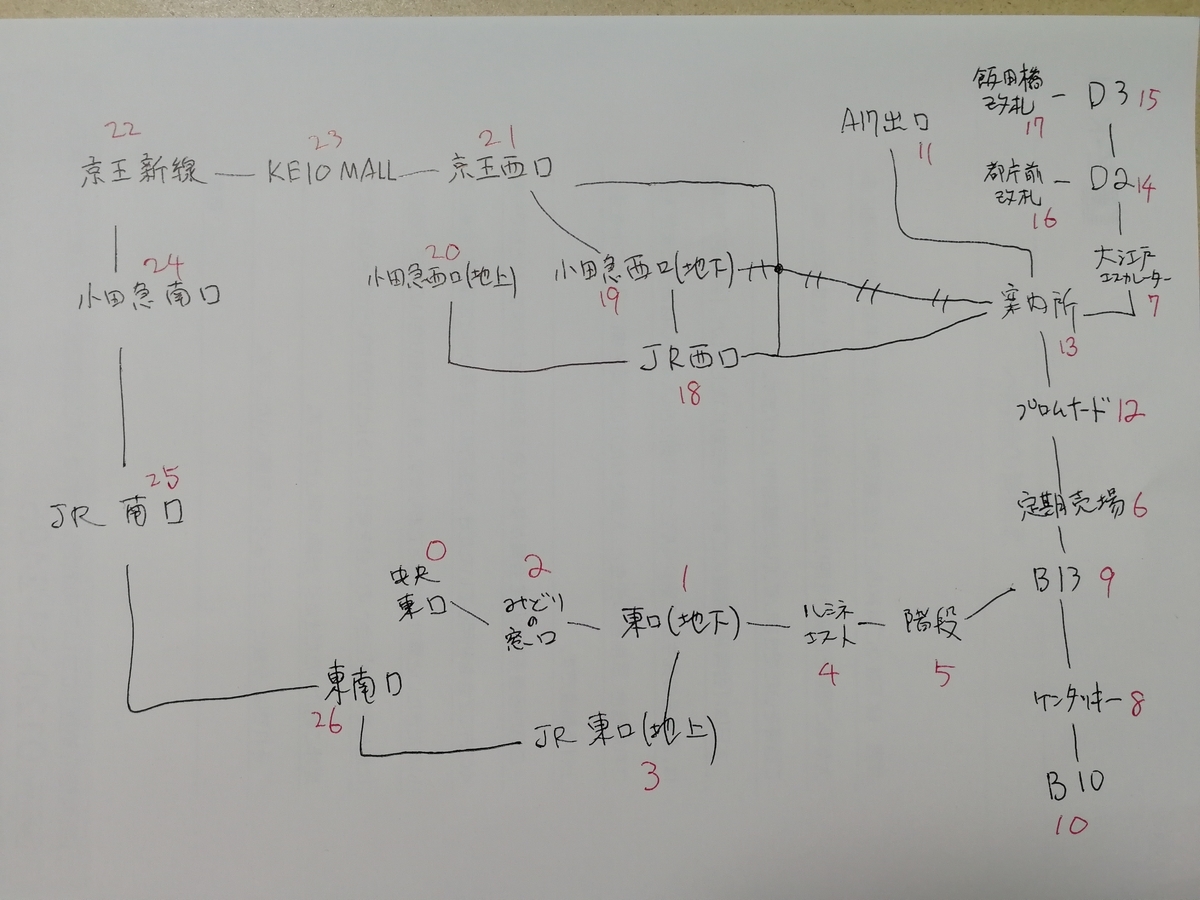 飯田橋
改札
17
D3 15
A17出口
11
22
京王新線
23
KEIO MALL
21
京王西口
都庁前
改札
16
D2 14
大江戸
エスカレーター
7
24
小田急南口
20
小田急西口(地上)
小田急西口(地下)
19
案内所
13
JR西口
18
プロムナード 12
25
JR 南口
定期売場 6
0
中央
東口
2
みどり
の
窓口
1
東口(地下)
ルミネ
エスト
4
階段
5
B13 9
東南口
26
JR 東口(地上)
3
ケンタッキー 8
B10
10